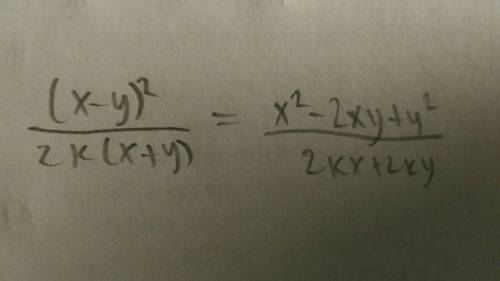 (x-y)²/2K(x+y) = x²-2xy+y²/2Kx+2Ky